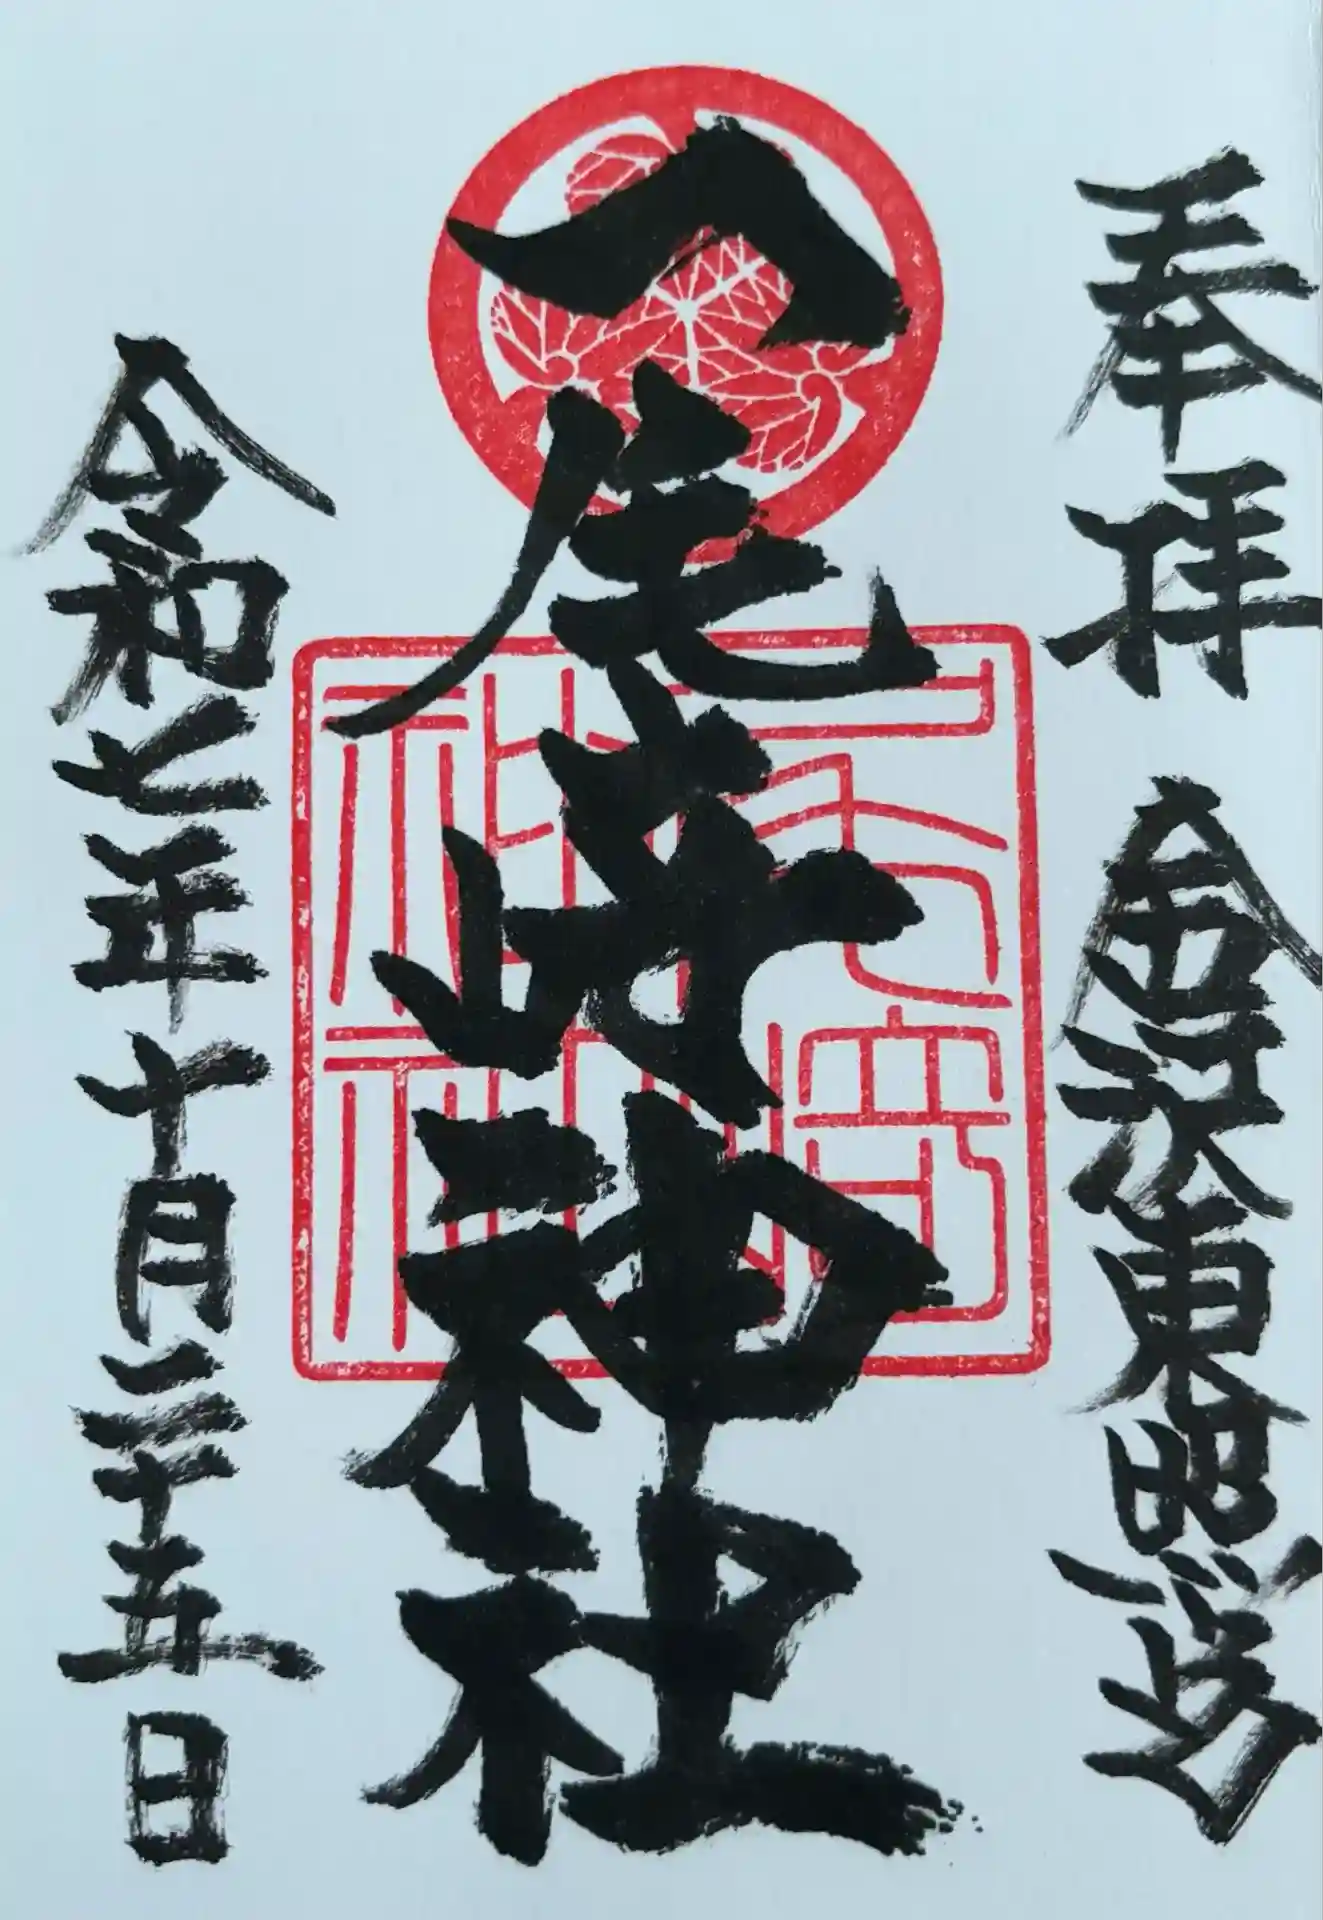 奉拝 金沢東照宮
尾崎神社
令和七年十月二十五日
尾崎神社